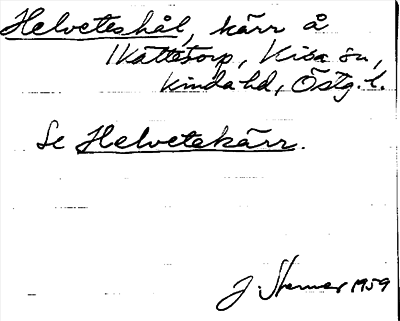 Helveteshål, kärr å
1 Kättetorp, Kisa sn,
Kinda hd, Östg. l.
Se Helvetekärr.
J. Stenner 1959